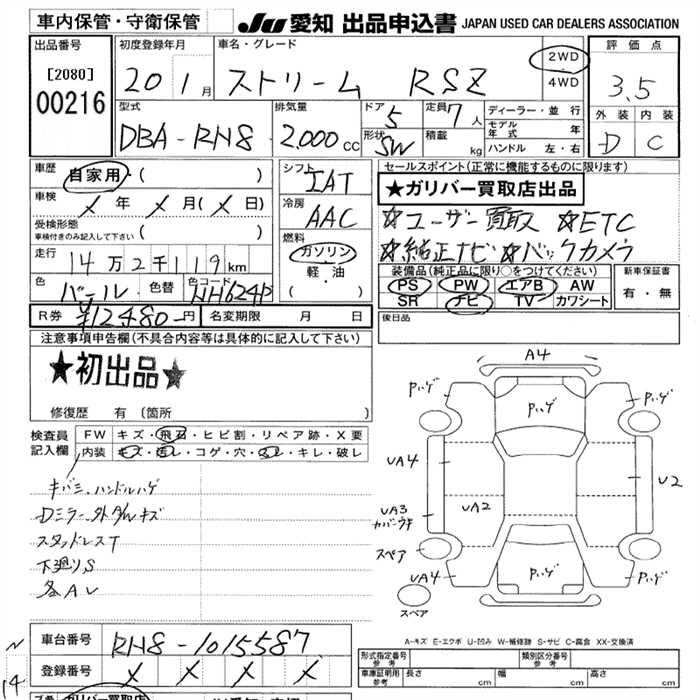 車内保管・守衛保管
JU 愛知 出品申込書 JAPAN USED CAR DEALERS ASSOCIATION
出品番号
[2080]
00216
初度登録年月
20 1月
車名・グレード
ストリーム RSZ
2WD
4WD
評価点
3.5
外装 内装
D C
型式
DBA-RN8
排気量
2.000cc
ドア
5
形状
SW
定員 7人
積載 kg
ディーラー・並行
モデル年式 年
ハンドル 左・右
車歴
自家用・( )
車検
メ年 メ月(メ日)
受検形態
車検付きのみ記入して下さい ( )
走行
14万2千119km
色
パール
色替
色コード
NH624P
シフト
IAT
冷房
AAC
燃料
ガソリン
軽・油
( )
セールスポイント(正常に機能するものに限ります)
★ガリバー買取店出品
☆ユーザー買取 ☆ETC
☆純正ナビ☆バックカメラ
装備品(純正品に限り○をつけてください)
PS PW エアB AW
SR ナビ TV カワシート
新車保証書
有・無
R券
¥12480円
名変期限 月 日
後日品
注意事項申告欄(不具合内容等は具体的に記入して下さい)
★初出品★
修復歴 有 (箇所 )
検査員
記入欄
FW キズ・飛石・ヒビ割・リペア跡・X要
内装 キズ・汚レ・コゲ・穴・スレ・キレ・破レ
キバミ、ハンドルハゲ
Dミラー外ダメキズ
スタッドレスT
下廻りS
各AU
A4
Pハゲ
Pハゲ
Pハゲ
UA4
U2
UA3
カバーワレ
UA2
スペア
UA4
Pハゲ
Pハゲ
スペア
A-キズ E-エクボ U-凹み W-補修跡 S-サビ C-腐食 XX-交換済
車台番号
RN8-1015587
登録番号
メ メ メ メ
N
14
形式指定番号
参考
類別区分番号
参考
車庫証明用
参考
長さ cm
幅 cm
高さ cm
ガリバー買取店